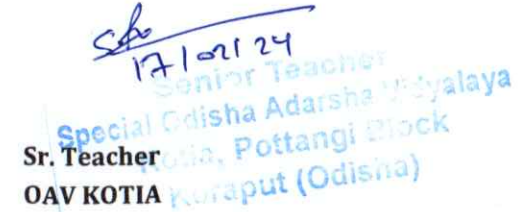 17/02/24
Senior Teacher
Special Odisha Adarsha Vidyalaya
Kotia, Pottangi Block
Koraput (Odisha)
Sr. Teacher
OAV KOTIA